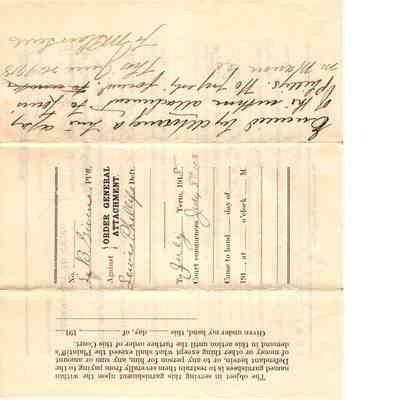 Executed by delivering a true copy
of the within attachment to Lewis
Phillips. No property found.
in Marion
This June 21 1915
No.
J. B. Givens, Pl'ff.
Against
ORDER GENERAL
ATTACHMENT.
Lewis Phillips Deft.
To July Term, 191 5
Court summons July 5th
Came to hand day of
191 , at o'clock M
The object in serving this garnishment upon the within
named garnishees is to restrain them severally from paying to the
Defendant herein, or to any person for him, any sum or amount
of money or other thing except what shall exceed the Plaintiff's
demand in this action until the further order of this Court.
Given under my hand, this day of , 191